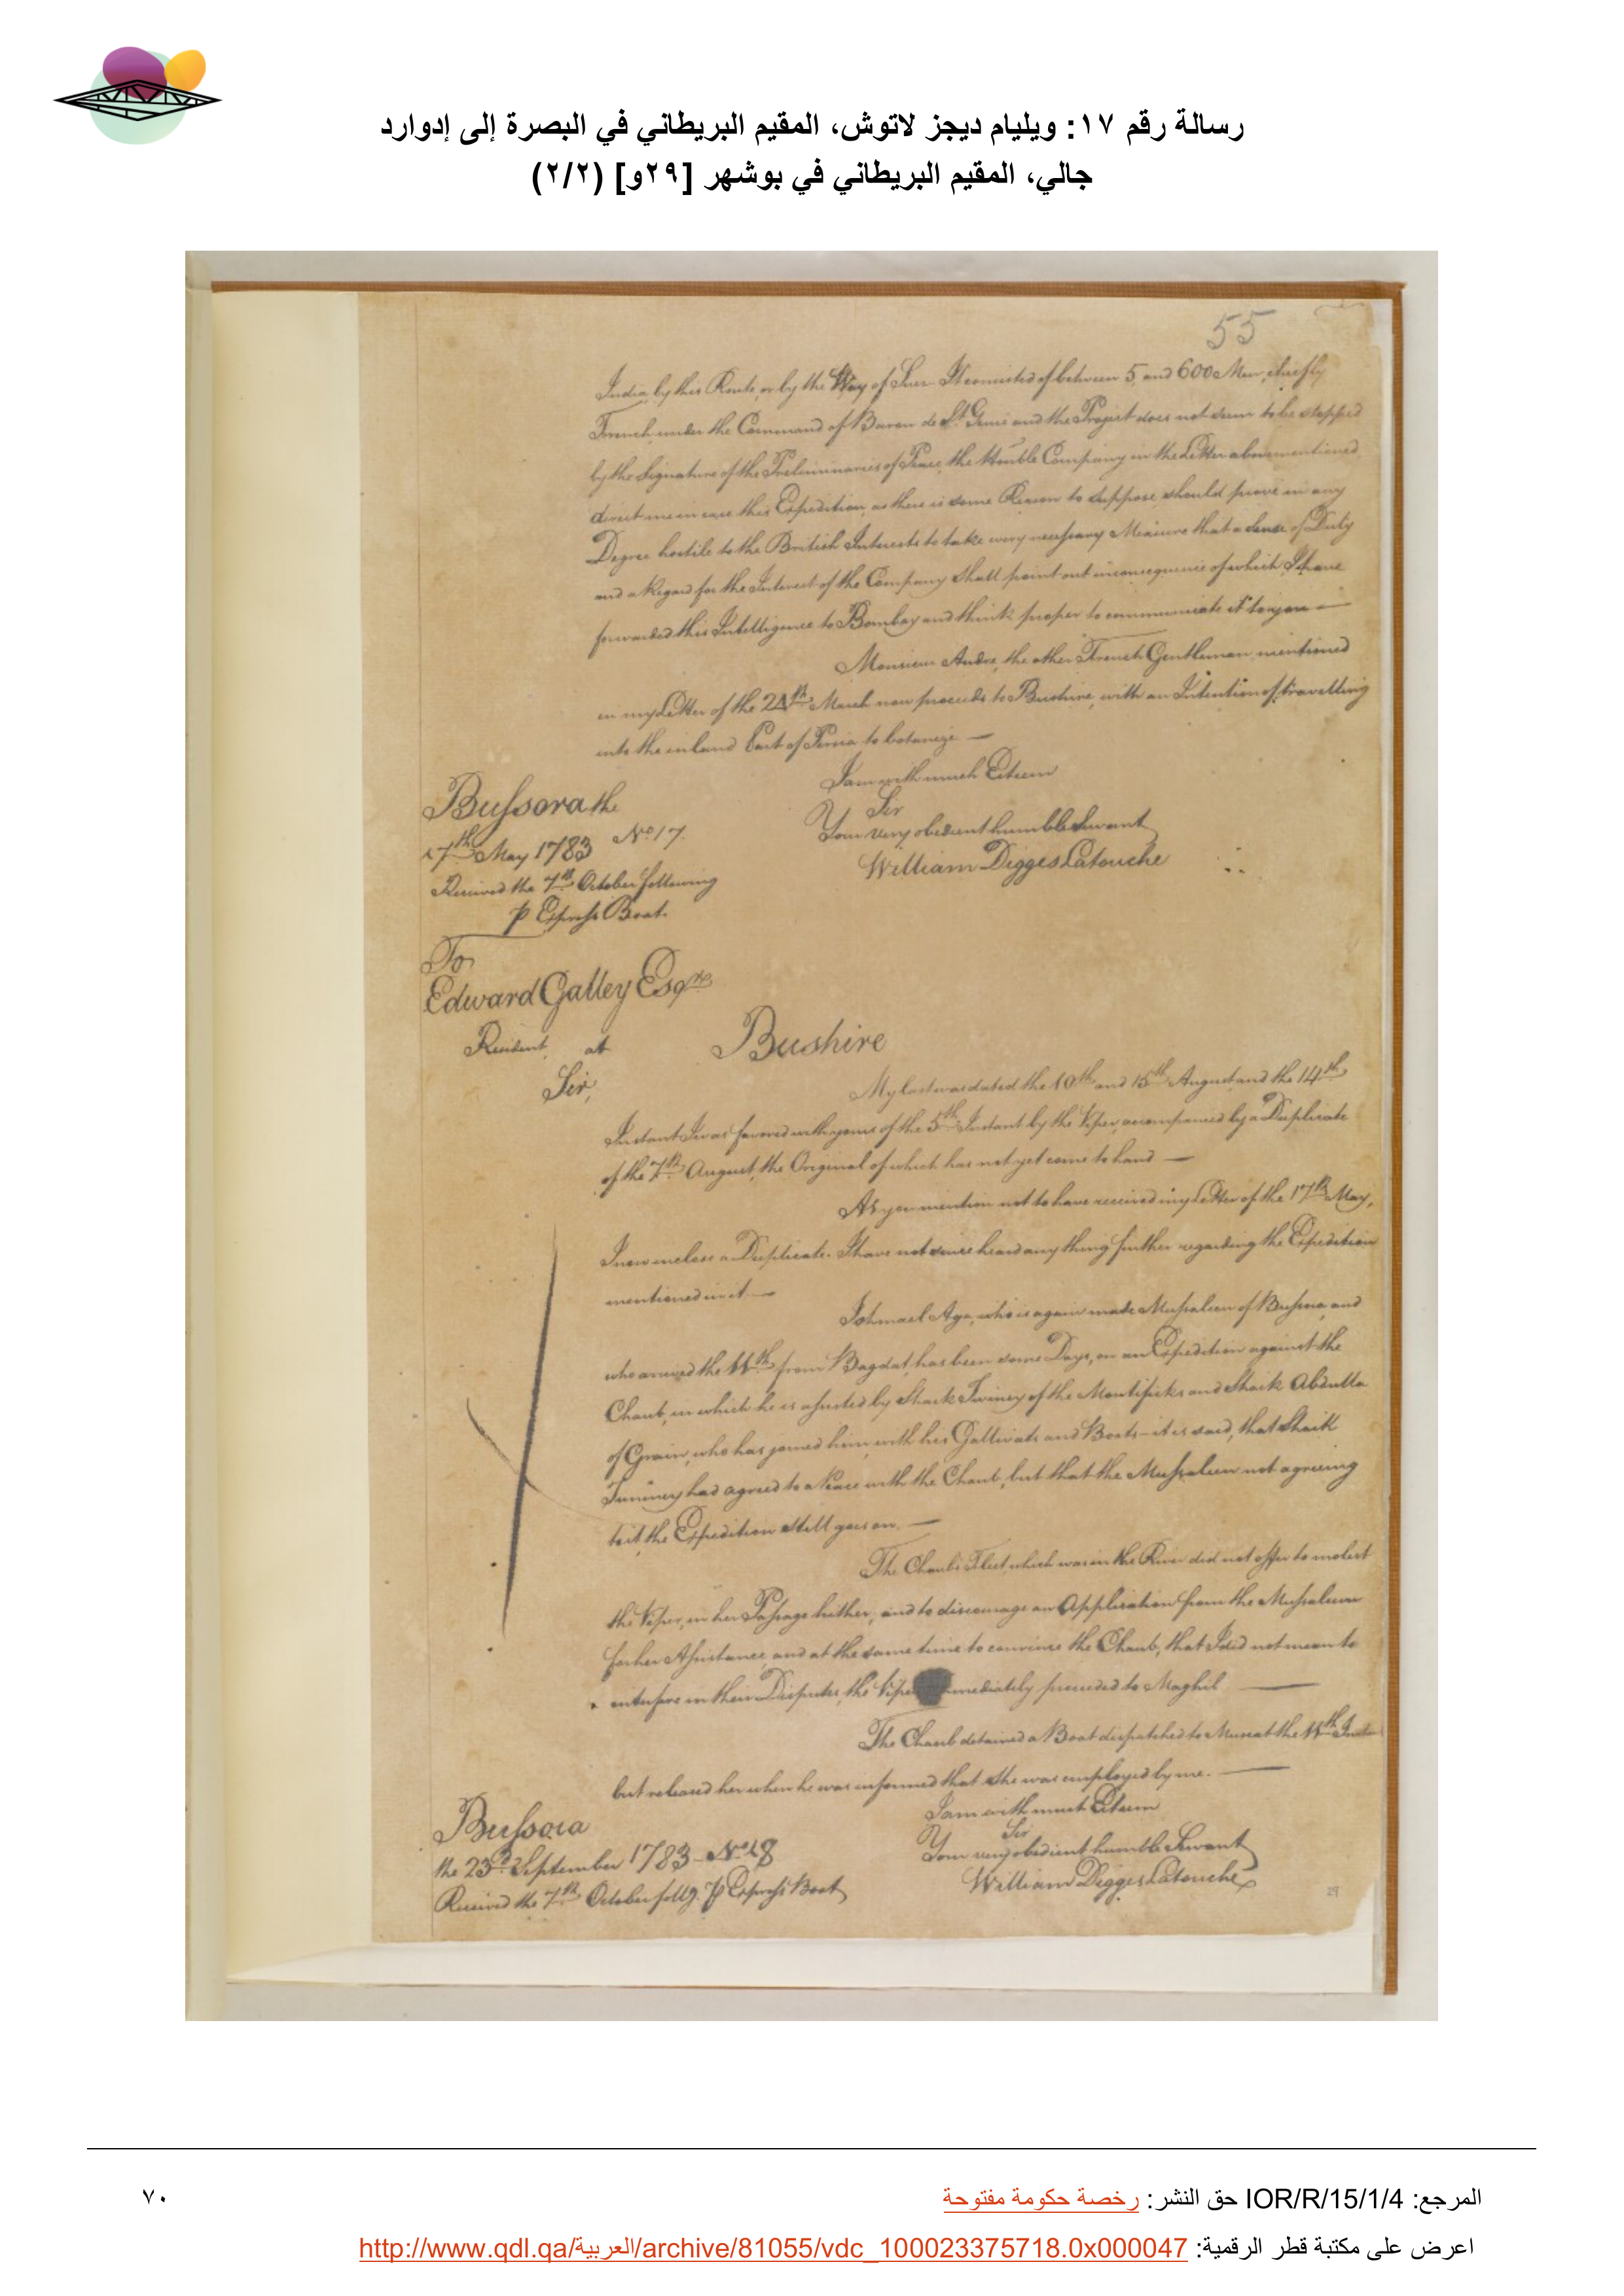 رسالة رقم ١٧: ويليام ديجز لاتوش، المقيم البريطاني في البصرة إلى إدوارد
جالي، المقيم البريطاني في بوشهر [٢٩و] (٢/٢)
55
India, by this Route, or by the Way of Suez. It consisted of between 5, and 600 Men, chiefly
French, under the Command of Baron de St. Genis and the Project does not seem to be stopped
by the Signature of the Preliminaries of Peace, the Honble Company in the Letter abovementioned
direct me in case this Expedition, as there is some Reason to suppose, should prove in any
Degree hostile to the British Interests to take every necessary Measure that a sense of Duty
and a Regard for the Interest of the Company shall point out in consequence of which I have
forwarded this Intelligence to Bombay and think proper to communicate it to you —
Monsieur Andre, the other French Gentleman, mentioned
in my Letter of the 24th March now proceeds to Bushire, with an Intention of travelling
into the inland Part of Persia to botanize —
I am with much Esteem
Sir
Your very obedient humble Servant
William Digges Latouche
Bussora the
17th May 1783 No. 17.
Received the 7th October following
p Express Boat.
To
Edward Galley Esqre
Resident at Bushire
Sir,
My last was dated the 10th and 15th August, and the 14th
Instant I was favored with yours of the 5th Instant by the Viper, accompanied by a Duplicate
of the 7th August, the Original of which has not yet come to hand —
As you mention not to have received my Letter of the 17th May,
I now inclose a Duplicate. I have not since heard any thing further regarding the Expedition
mentioned in it —
Ishmael Aga, who is again made Mussaleem of Bussora, and
who arrived the 11th from Bagdat, has been some Days, on an Expedition against the
Chaub, in which he is assisted by Shaik Twiney of the Montificks and Shaik Abdulla
of Grain, who has joined him, with his Gallivats and Boats - it is said, that Shaik
Twiney had agreed to a Peace with the Chaub, but that the Mussaleem not agreeing
to it, the Expedition still goes on. —
The Chaub's Fleet, which was in the River did not offer to molest
the Viper, in her Passage hither, and to discourage an Application from the Mussaleem
for her Assistance, and at the same time to convince the Chaub, that I did not mean to
interfere in their Disputes, the Viper immediately proceeded to Maghil —
The Chaub detained a Boat dispatched to Muscat the 11th Instant
but released her when he was informed that she was employed by me. —
I am with much Esteem
Sir
Your very obedient humble Servant
William Digges Latouche
Bussora
the 23d September 1783 - No. 18
Received the 7th October follg. p Express Boat
29
المرجع: IOR/R/15/1/4 حق النشر: رخصة حكومة مفتوحة
٧٠
اعرض على مكتبة قطر الرقمية: http://www.qdl.qa/العربية/archive/81055/vdc_100023375718.0x000047